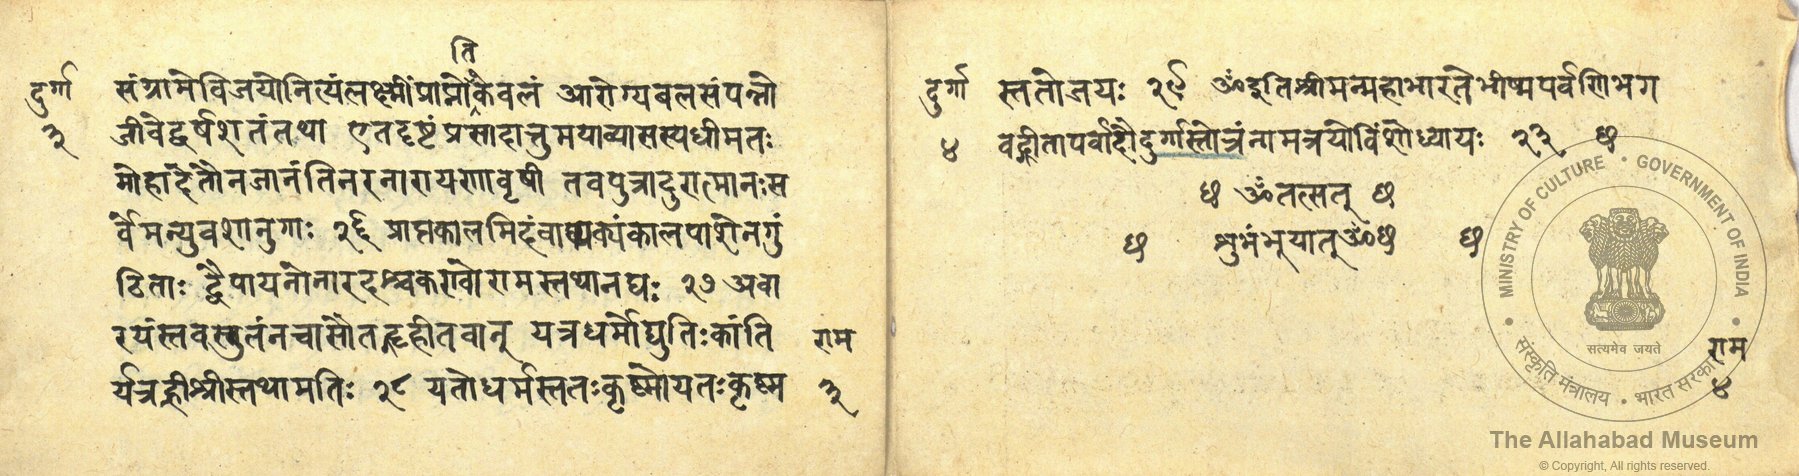 ति
दुर्गा संग्रामेविजयोनित्यंलक्ष्मींप्राप्नोकेवलं आरोग्यबलसंपन्नो
३ जीवेद्वर्षशतंतथा एतदृष्टंप्रसादात्तुमयाव्यासस्यधीमतः
मोहादेतौनजानंतिनरनारायणावृषी तवपुत्रादुरात्मानःस
र्वेमन्युवशानुगाः २६ प्राप्तकालमिदंवाक्यंकालपाशेनगुं
ठिताः द्वैपायनोनारदश्चकण्वोरामस्तथानघः २७ अवा
रयंस्तवसुतंनचासौतद्गृहीतवान् यत्रधर्मोद्युतिःकांति राम
र्यत्रह्रीश्रीस्तथामतिः २८ यतोधर्मस्ततःकृष्णोयतःकृष्ण ३
दुर्गा स्ततोजयः २९ ॐइतिश्रीमन्महाभारतेभीष्मपर्वणिभग
४ वद्गीतापर्वादौदुर्गास्तोत्रंनामत्रयोविंशोध्यायः २३ छ
छ ॐतत्सत् छ
छ शुभंभूयात्ॐछ छ
राम
४
MINISTRY OF CULTURE • GOVERNMENT OF INDIA
सत्यमेव जयते
संस्कृति मंत्रालय • भारत सरकार
The Allahabad Museum
© Copyright, All rights reserved.